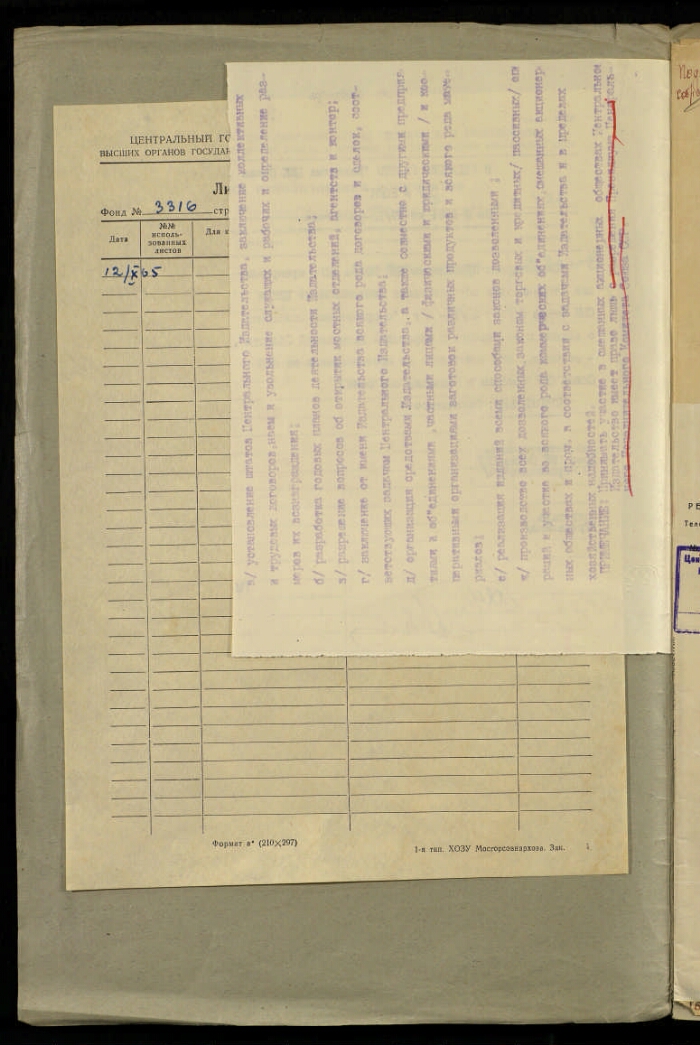 ЦЕНТРАЛЬНЫЙ ГО
ВЫСШИХ ОРГАНОВ ГОСУДАР
Ли
Фонд № 3316 стр
Дата
№№ исполь-
зованных
листов
Для к
12/X 65
а/ установление штатов Центрального Издательства, заключение коллективных
и трудовых договоров, наем и увольнение служащих и рабочих и определение раз-
меров их вознаграждения;
б/ разработка годовых планов деятельности Издательства;
в/ разрешение вопросов об открытии местных отделений, агентств и контор;
г/ заключение от имени Издательства всякого рода договоров и сделок, соот-
ветствующих задачам Центрального Издательства;
д/ организация средствами Издательства, а также совместно с другими предприя-
тиями и об'единениями, частными лицами / физическими и юридическими / и коо-
перативными организациями заготовок различных продуктов и всякого рода мате-
риалов;
е/ реализация изданий всеми способами законом дозволенными;
ж/ производство всех дозволенных законом торговых и кредитных / пассивных/ опе
раций и участие во всякого рода коммерческих об'единениях, смешанных акционер
ных обществах и проч. в соответствии с задачами Издательства и в пределах
хозяйственных надобностей.
ПРИМЕЧАНИЕ: Принимать участие в смешанных акционерных обществах Центральное
Издательство имеет право лишь с
ного Исполнительного Комитета Союза ССР
Формат а⁴ (210×297)
1-я тип. ХОЗУ Мосгорсовнархоза. Зак.